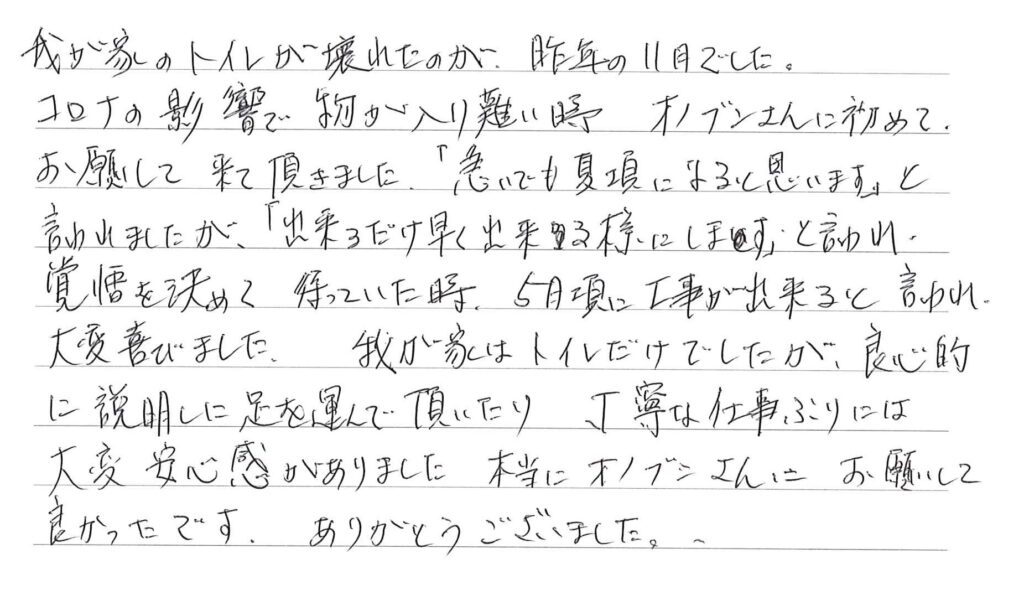 我が家のトイレが壊れたのが、昨年の11月でした。
コロナの影響で物が入り難い時 オノブンさんに初めて、
お願して来て頂きました。「急いでも夏項になると思います」と
言われましたが、「出来るだけ早く出来る様にします」と言われ、
覚悟を決めて待っていた時、5月項に工事が出来ると言われ、
大変喜びました。 我が家はトイレだけでしたが、良心的
に説明しに足を運んで頂いたり 丁寧な仕事ぶりには
大変安心感がありました 本当にオノブンさんに お願いして
良かったです。 ありがとうございました。